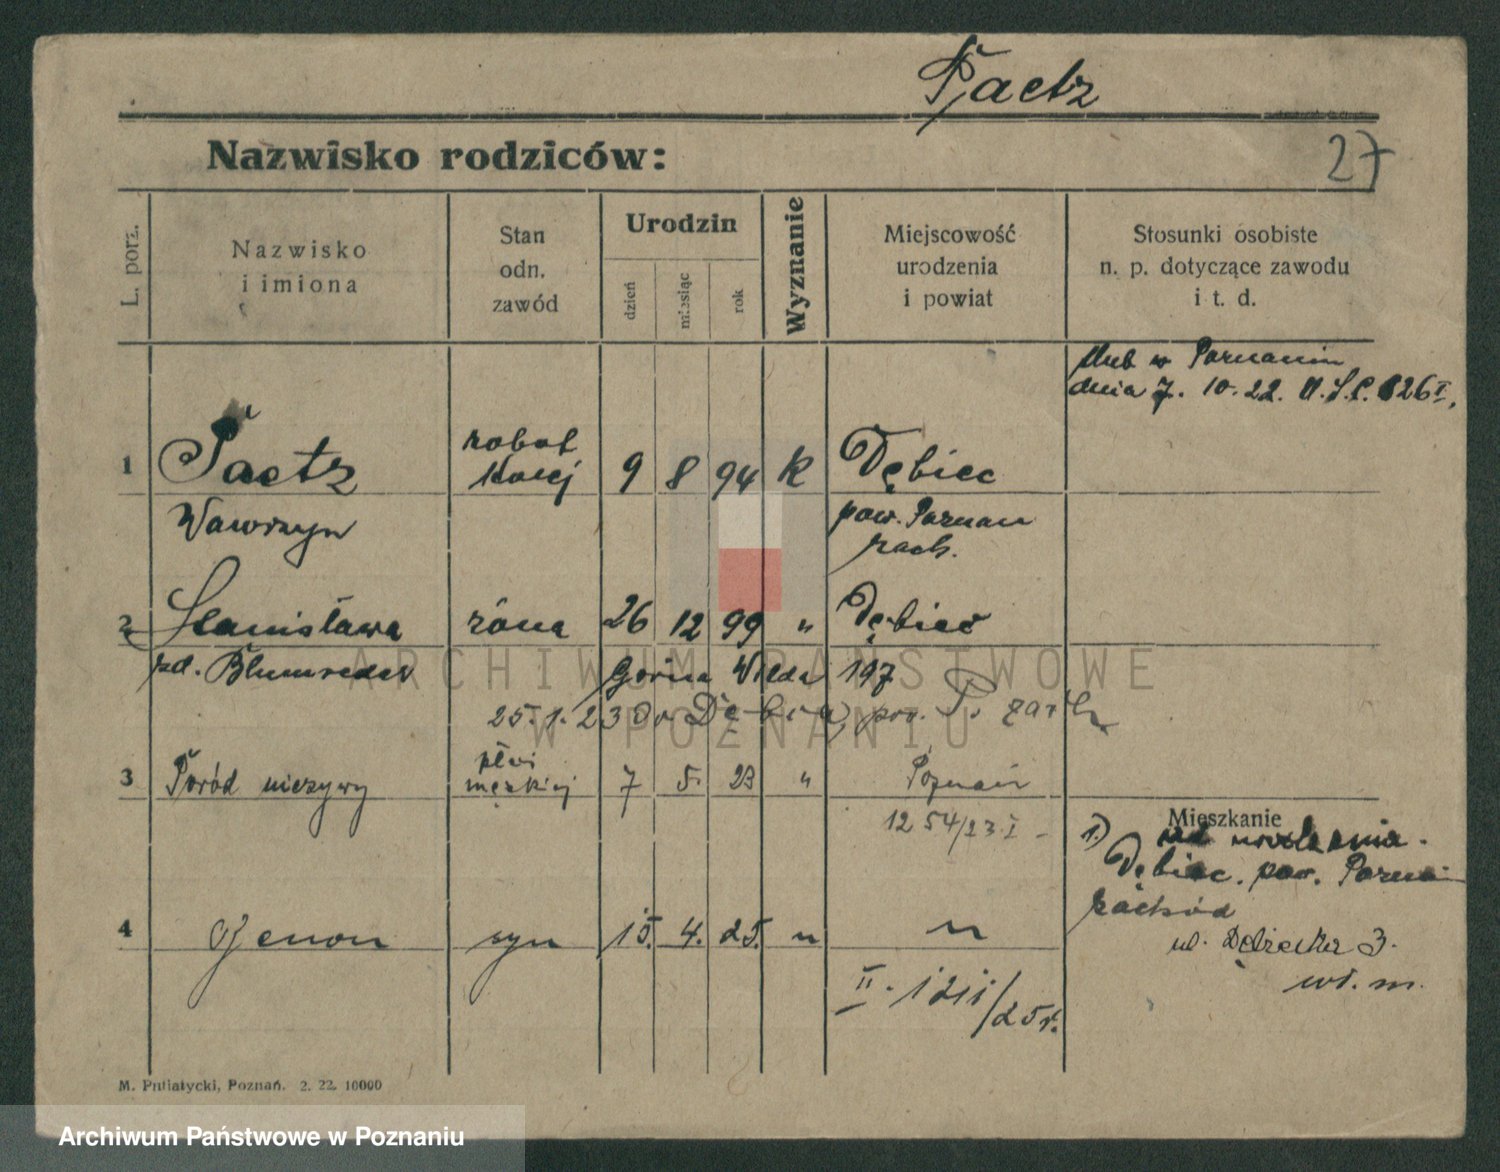 Paetz
Nazwisko rodziców:
27
L. porz.
Nazwisko
i imiona
Stan
odn.
zawód
Urodzin
dzień
miesiąc
rok
Wyznanie
Miejscowość
urodzenia
i powiat
Stosunki osobiste
n. p. dotyczące zawodu
i t. d.
ślub w Poznaniu
dnia 7. 10. 22.
1 Paetz robot kolej 9 8 94 K Dębiec
Wawrzyn pow. Poznań
zach.
2 Stanisława żona 26 12 99 " Dębiec
Górna Wilda 197
25. 1. 23 Dębiec, pow. P. zach
3 Poród nieżywy płci męzkiej 7 5. 23 " Poznań
1254/23 I -
Mieszkanie
1)
Dębiec. pow. Poznań
zachód
ul. Dębiecka 3.
wł. m.
4 Zenon syn 15. 4. 25. " "
II. 1211/25 r.
M. Putiatycki, Poznań. 2. 22. 10000
ARCHIWUM PAŃSTWOWE
W POZNANIU
Archiwum Państwowe w Poznaniu